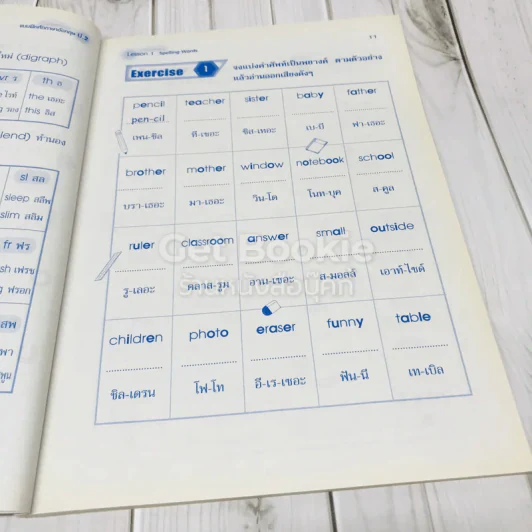 แบบฝึกหัดภาษาอังกฤษ ป.2
(digraph)
th ธ
the เธอะ
this ธิส
blend) ทำนอง
sl สล
sleep สลีพ
slim สลิม
fr ฟร
Lesson 1 Spelling Words
11
Exercise 1 จงแบ่งคำศัพท์เป็นพยางค์ ตามตัวอย่าง
แล้วอ่านออกเสียงดังๆ
pencil teacher sister baby father
pen-cil
เพน-ซิล ที-เชอะ ซิส-เทอะ เบ-บี ฟา-เธอะ
brother mother window notebook school
บรา-เธอะ มา-เธอะ วิน-โด โนท-บุค ส-คูล
ruler classroom answer small outside
รู-เลอะ คลาส-รูม อาน-เซอะ ส-มอลล์ เอาท์-ไซด์
children photo eraser funny table
ชิล-เดรน โฟ-โท อี-เร-เซอะ ฟัน-นี เท-เบิล
Get Bookie
ร้านหนังสือบุ๊คกี้